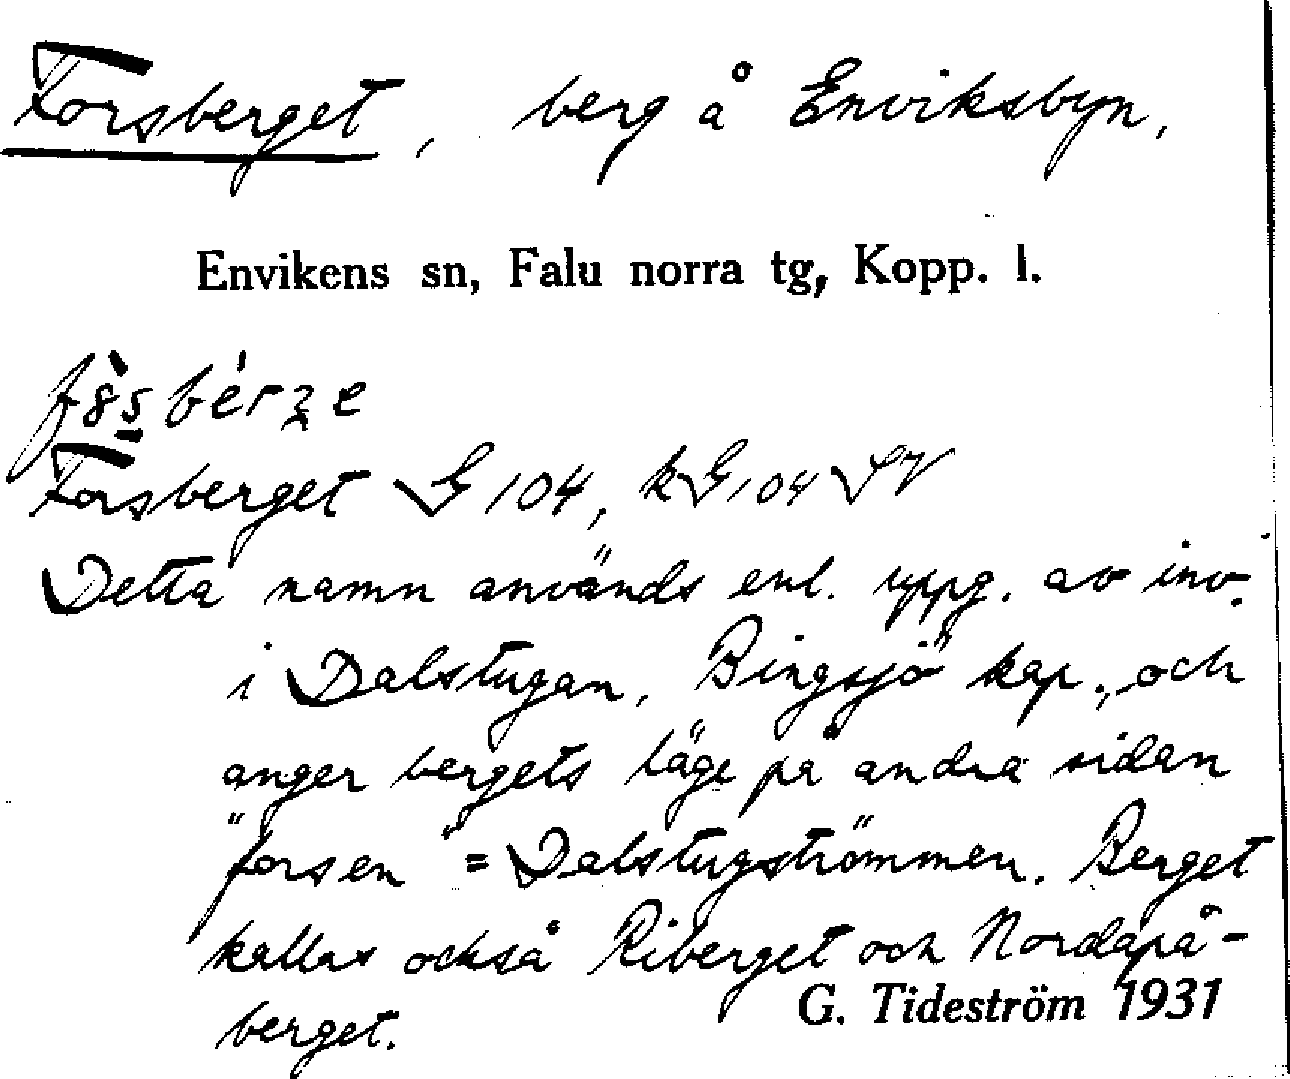 Forsberget, berg å Enviksbyn,
Envikens sn, Falu norra tg, Kopp. l.
Forsberget G 104, kG 104 SV
Detta namn används enl. uppg. av inv.
i Dalstugan, Bingsjö kap., och
anger bergets läge på andra sidan
"forsen" = Dalstugströmmen. Berget
kallas också Riberget och Nordapå-
berget.
G. Tideström 1931